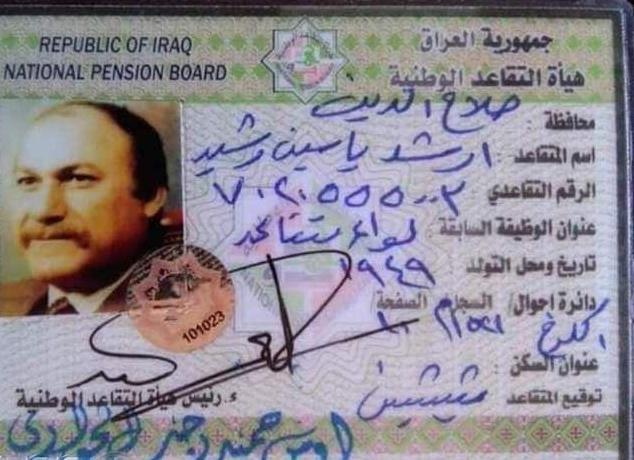 REPUBLIC OF IRAQ
NATIONAL PENSION BOARD
جمهورية العراق
هيأة التقاعد الوطنية
محافظة : صلاح الدين
اسم المتقاعد : ارشد ياسين رشيد
الرقم التقاعدي ٧٠٢٠٥٥٥٠٠٣
عنوان الوظيفة السابقة : لواء متقاعد
تاريخ ومحل التولد ١٩٤٩
دائرة احوال/ السجل/ الصفحة
الكرخ
عنوان السكن :
توقيع المتقاعد
101023
ء. رئيس هيأة التقاعد الوطنية